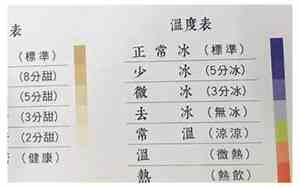 表
(標準)
(8分甜)
(5分甜)
(3分甜)
(2分甜)
(健康)
溫度表
正常冰 (標準)
少冰 (5分冰)
微冰 (3分冰)
去冰 (無冰)
常溫 (涼涼)
溫 (微熱)
熱 (熱飲)